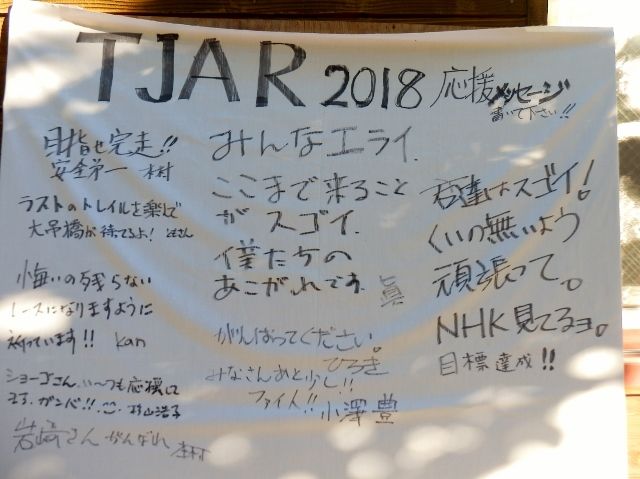 TJAR 2018 応援メッセージ
書いて下さい!!
目指せ完走!!
安全第一 木村
ラストのトレイルを楽しんで
大吊橋が待ってるよ!
悔いの残らない
レースになりますように
祈っています!! kan
ショーゴさん、いつも応援して
ます、ガンバ!! 杉山浩子
岩崎さんがんばれ 木村
みんなエライ.
ここまで来ること
がスゴイ.
僕たちの
あこがれです. 真
がんばってください。
ひろき
みなさんあと少し!!
ファイト!!
小澤豊
君達はスゴイ!
くいの無いよう
頑張って。
NHK見てるヨ。
目標達成!!